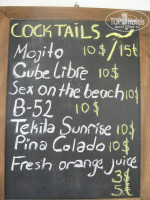 COCKTAILS
Mojito 10$/15$
Cube Libre 10$
Sex on the beach 10$
B-52 10$
Tekila Sunrise 10$
Pina Colado 10$
Fresh orange juice
3$
5$